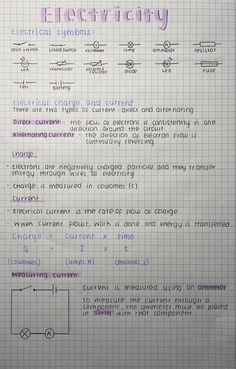 Electricity
Electrical symbols:
open switch closed switch ammeter lamp ammeter resistor
cell LED fuse
cell battery
Electrical charge and current
There are two types of current: direct and alternating
Direct current - the flow of electrons is consistently in one
direction around the circuit
Alternating current - the direction of electron flow is
continually reversing
Charge
- Electrons are negatively charged particles and they transfer
energy through wires as electricity
- Charge is measured in coulombs (C)
Current
- Electrical current is the rate of flow of charge.
- When current flows, work is done and energy is transferred
Charge = Current x time
Q = I x t
(coulombs) (amps, A) (seconds, s)
Measuring current
Current is measured using an ammeter
To measure the current through a
component, the ammeter must be placed
in series with that component.
A